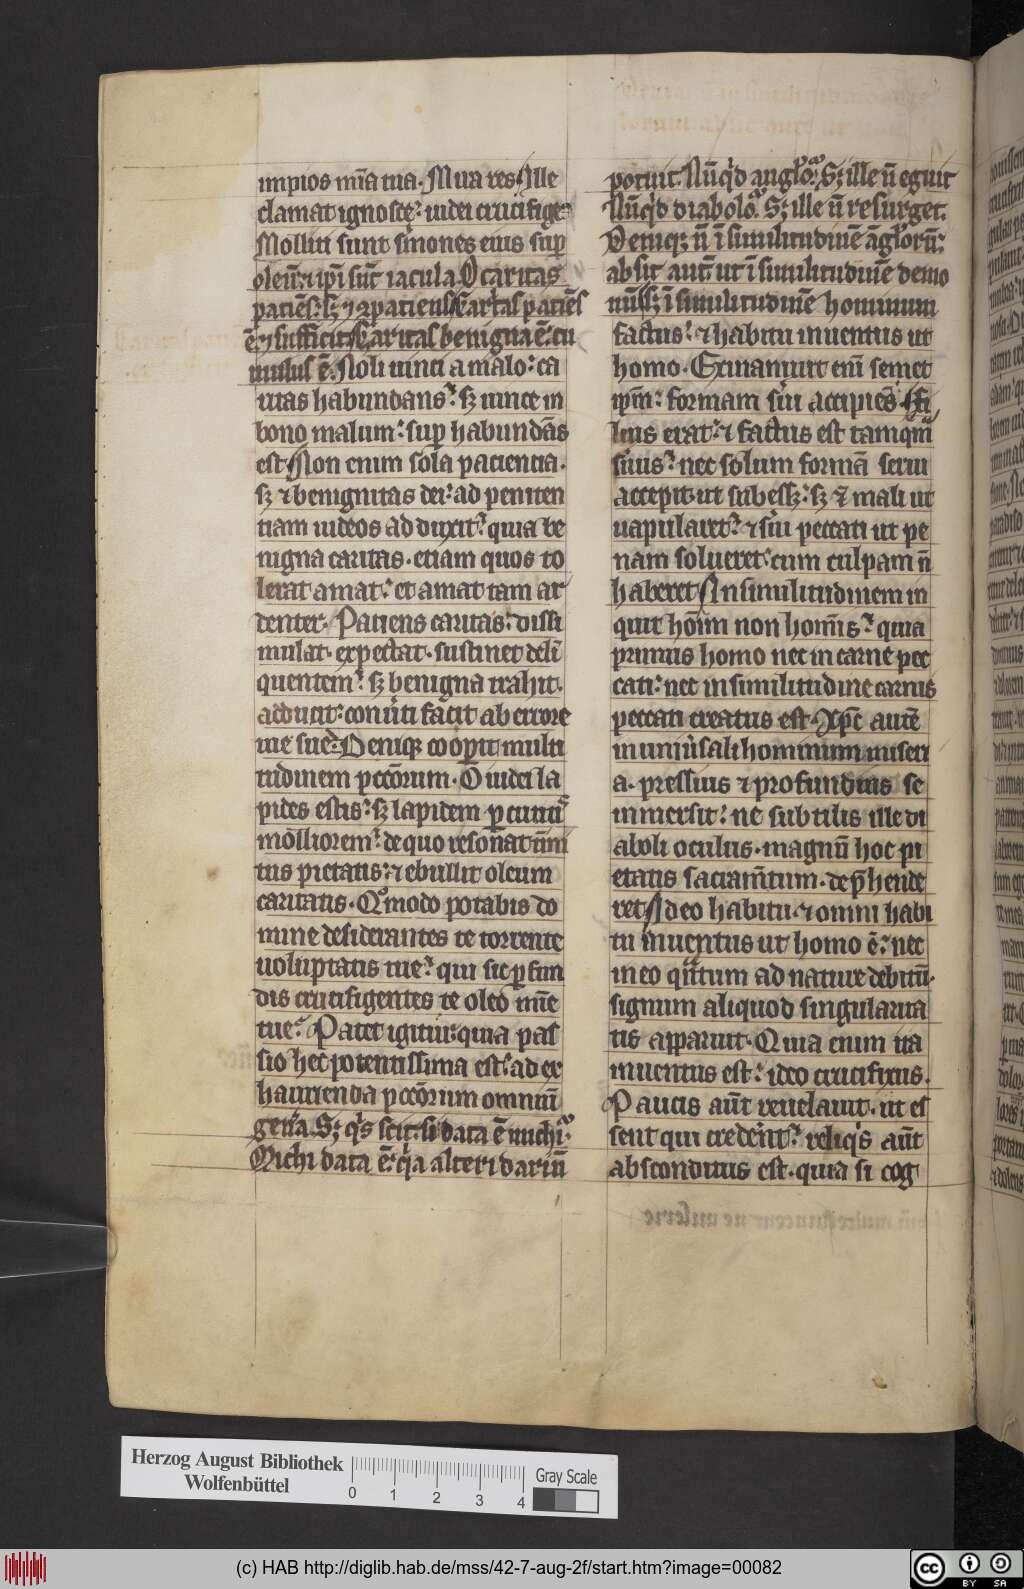 impios mīa tua. Mira res. Ille
clamat ignosce: iudei crucifige.
Molliti sunt s̄mones eius sup̄
oleū: ⁊ ip̄i sūt iacula. O caritas
paciēs: sꝫ ⁊ ꝯpaciens. Caritas paciēs
ē. ⁊ sufficit. Caritas benigna ē: cu
mulus ē. Noli uinci a malo: ca
ritas habundans: sꝫ uince in
bono malum: sup̄ habundās
est. Non enim sola paciencia.
sꝫ ⁊ benignitas dei: ad peniten
tiam iudeos adduxit: quia be
nigna caritas. etiam quos to
lerat amat: et amat tam ar
denter. Paciens caritas: dissi
mulat. expectat. sustinet deli
quentem: sꝫ benigna trahit.
adducit: conu̓ti facit ab errore
uie sue. Deniqꝫ coop̄it multi
tudinem pccōrum. O iudei la
pides estis: sꝫ lapidem ꝑcutitis
molliorem: de quo resonat tīni
tus pietatis: ⁊ ebullit oleum
caritatis. Qomodo potabis do
mine desiderantes te torrente
uoluptatis tue: qui sic ꝑfun
dis crucifigentes te oleo mīe
tue. Patet igitur: quia pas
sio hec potentissima est: ad ex
haurienda pccōrum omniū
gen̄a. Sꝫ qͥs scit: si data ē michi.
Michi data ē: qͥa alteri dari nō
potuit. Nūqͥd anglo: Sꝫ ille n̄ eguit
Nūqͥd diabolo. Sꝫ ille n̄ resurget.
Deniqꝫ n̄ ī similitudinē āgłorū:
absit aūt ut ī similitudinē demo
nū: sꝫ ī similitudinē hominum
factus: ⁊ habitu inuentus ut
homo. Exinaniuit enī semet
ipm̄: formam s̓ui accipiēs. Fi
lius erat: ⁊ factus est tamqͣm
s̓uus: nec solum formā serui
accepit ut subess̄ꝫ: sꝫ ⁊ mali ut
uapularet: ⁊ s̓ui peccati ut pe
nam solueret: cum culpam n̄
haberet. In similitudinem in
quit hōim non hom̄is: quia
primus homo nec in carne pec
cati: nec in similitudine carnis
peccati creatus est. Xp̄c autē
in uniu̓sali hominum miseri
a. pressius ⁊ profundius se
inmersit: ne subtilis ille di
aboli oculus. magnū hoc pi
etatis sacram̄tum. dep̄hende
ret. Ideo habitu. ⁊ omni habi
tu inuentus ut homo ē: nec
in eo qͣntum ad nature debitū.
signum aliquod singularita
tis apparuit. Quia enim ita
inuentus est: ideo crucifixus.
Paucis aūt reuelauit. ut es
sent qui crederent: reliqͥs aūt
absconditus est. quia si cog
Herzog August Bibliothek
Wolfenbüttel
0 1 2 3 4
Gray Scale
(c) HAB http://diglib.hab.de/mss/42-7-aug-2f/start.htm?image=00082
cc BY SA